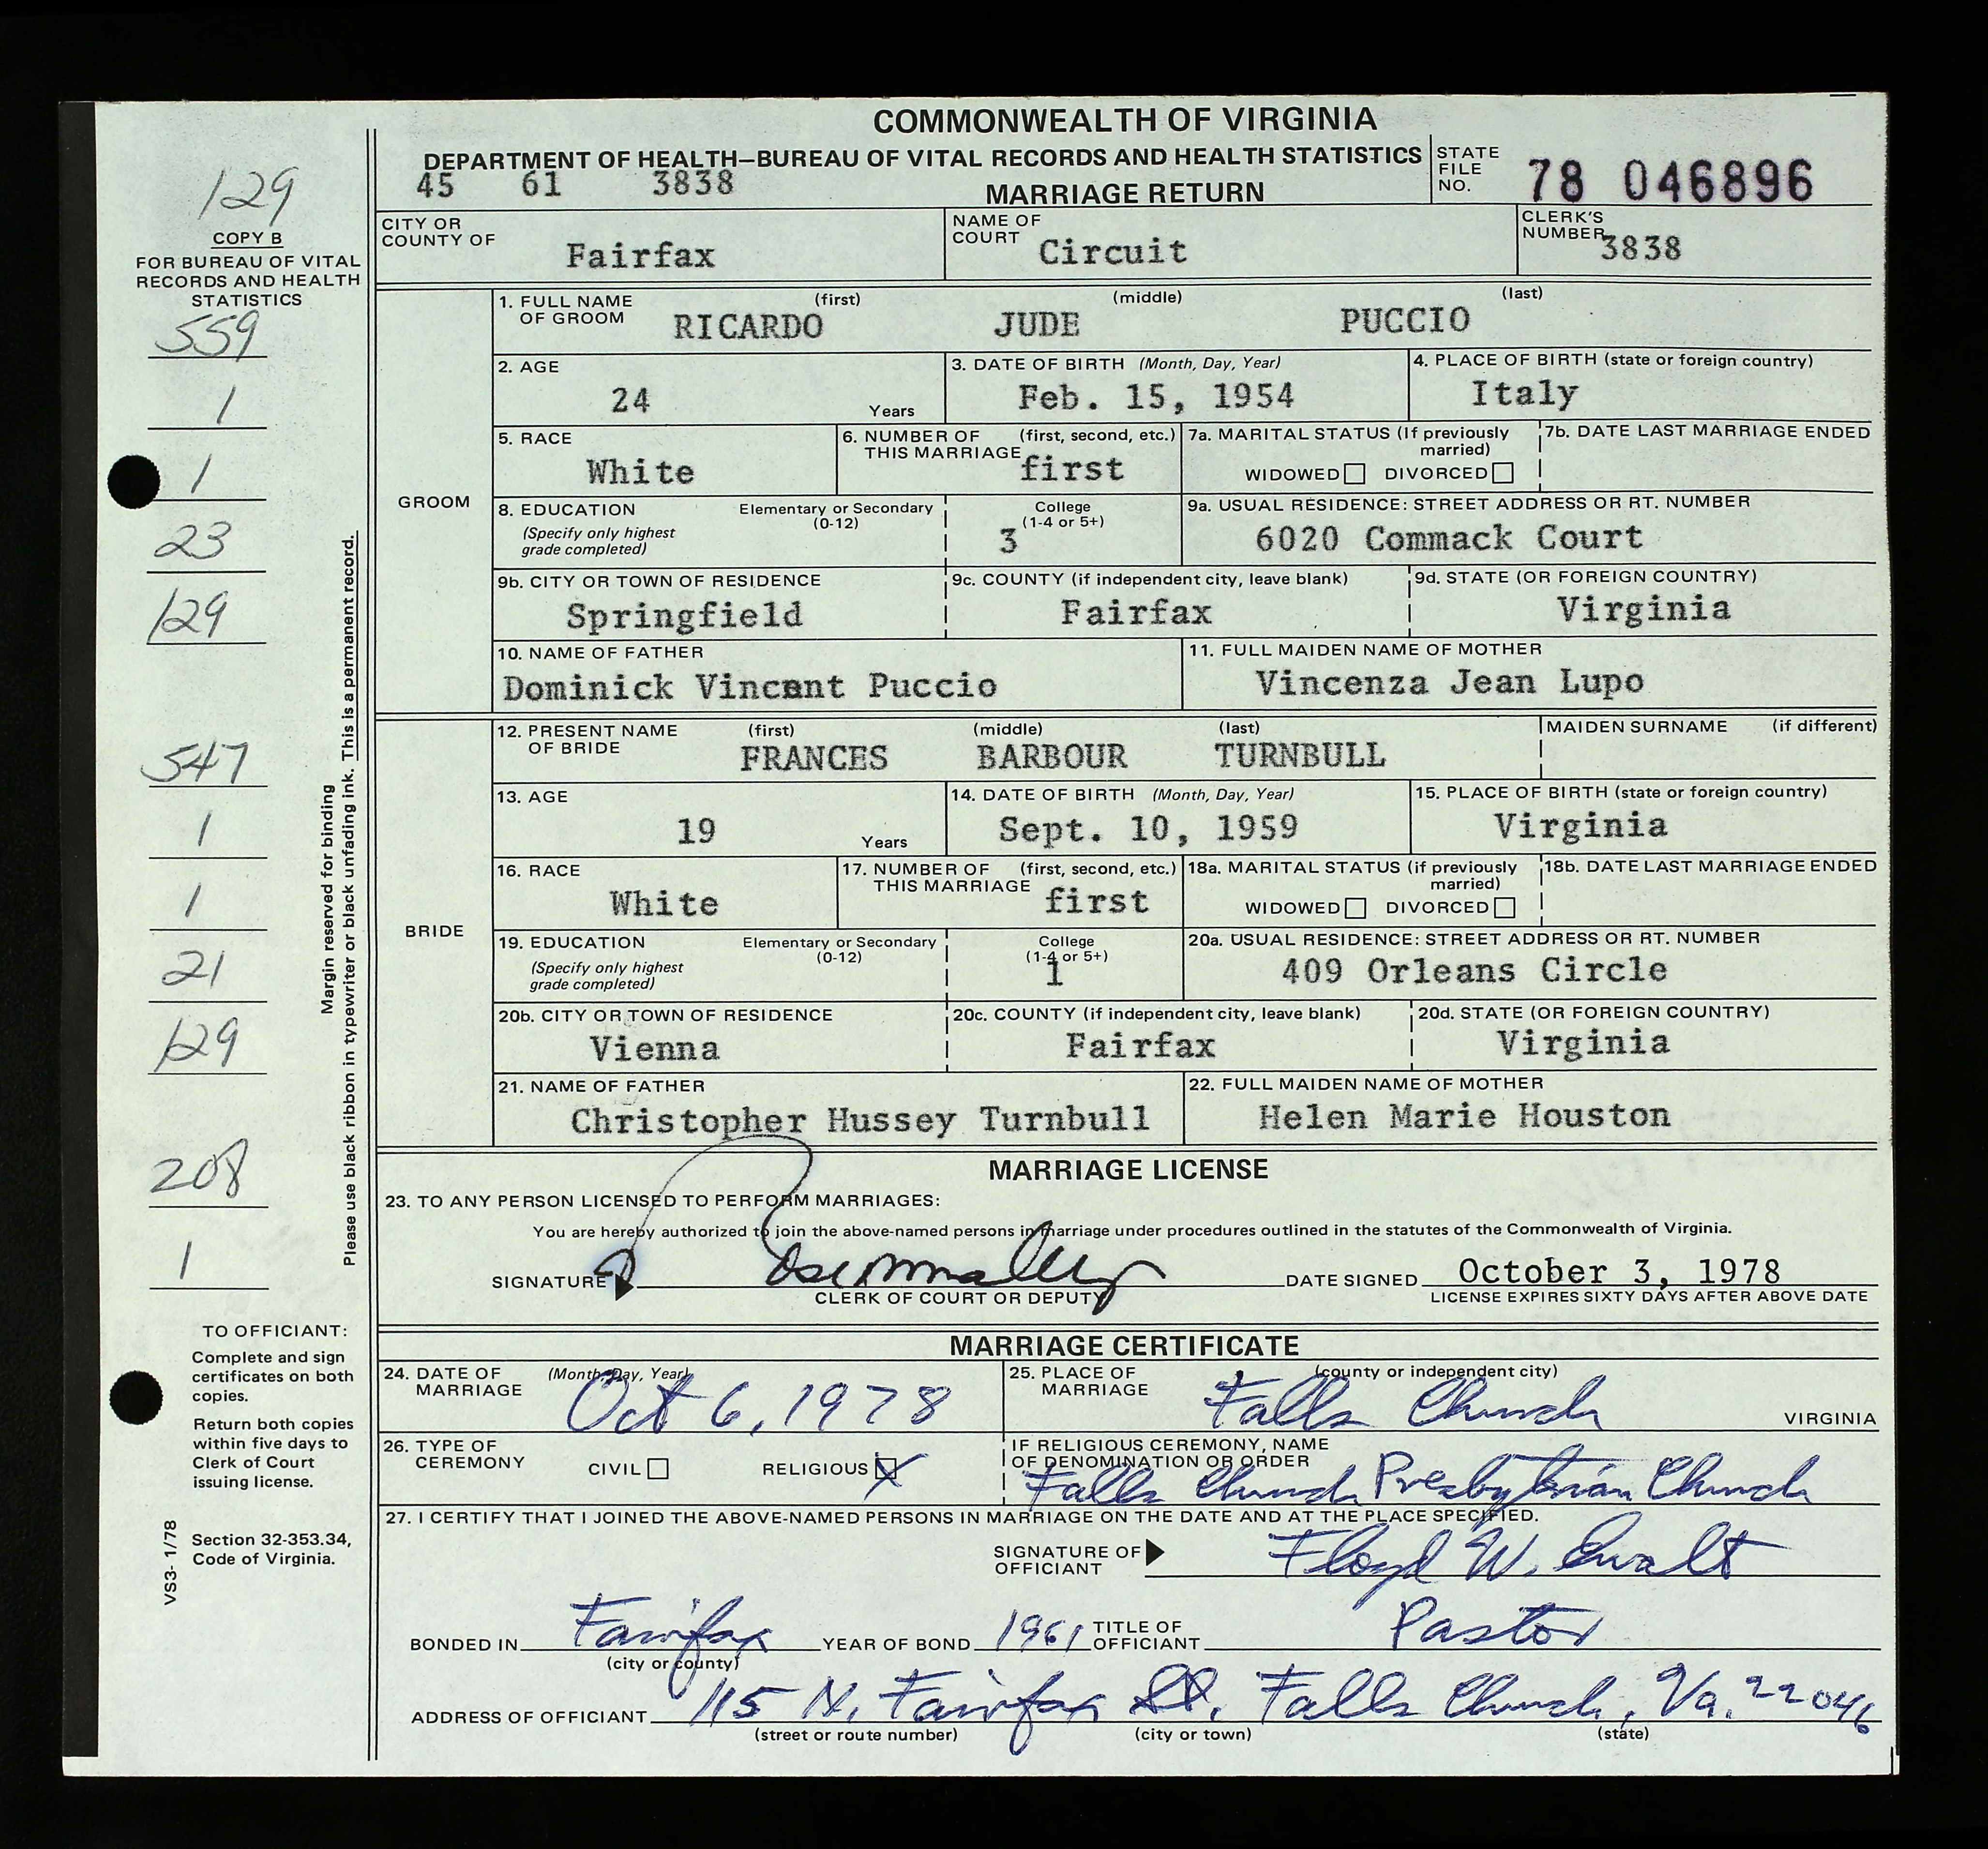 COMMONWEALTH OF VIRGINIA
DEPARTMENT OF HEALTH—BUREAU OF VITAL RECORDS AND HEALTH STATISTICS
45 61 3838
MARRIAGE RETURN
STATE FILE NO. 78 046896
CITY OR COUNTY OF Fairfax
NAME OF COURT Circuit
CLERK'S NUMBER 3838
GROOM
1. FULL NAME OF GROOM (first) RICARDO (middle) JUDE (last) PUCCIO
2. AGE 24 Years
3. DATE OF BIRTH (Month, Day, Year) Feb. 15, 1954
4. PLACE OF BIRTH (state or foreign country) Italy
5. RACE White
6. NUMBER OF THIS MARRIAGE (first, second, etc.) first
7a. MARITAL STATUS (If previously married) WIDOWED DIVORCED
7b. DATE LAST MARRIAGE ENDED
8. EDUCATION (Specify only highest grade completed) Elementary or Secondary (0-12) College (1-4 or 5+) 3
9a. USUAL RESIDENCE: STREET ADDRESS OR RT. NUMBER 6020 Commack Court
9b. CITY OR TOWN OF RESIDENCE Springfield
9c. COUNTY (if independent city, leave blank) Fairfax
9d. STATE (OR FOREIGN COUNTRY) Virginia
10. NAME OF FATHER Dominick Vincent Puccio
11. FULL MAIDEN NAME OF MOTHER Vincenza Jean Lupo
BRIDE
12. PRESENT NAME OF BRIDE (first) FRANCES (middle) BARBOUR (last) TURNBULL
MAIDEN SURNAME (if different)
13. AGE 19 Years
14. DATE OF BIRTH (Month, Day, Year) Sept. 10, 1959
15. PLACE OF BIRTH (state or foreign country) Virginia
16. RACE White
17. NUMBER OF THIS MARRIAGE (first, second, etc.) first
18a. MARITAL STATUS (if previously married) WIDOWED DIVORCED
18b. DATE LAST MARRIAGE ENDED
19. EDUCATION (Specify only highest grade completed) Elementary or Secondary (0-12) College (1-4 or 5+) 1
20a. USUAL RESIDENCE: STREET ADDRESS OR RT. NUMBER 409 Orleans Circle
20b. CITY OR TOWN OF RESIDENCE Vienna
20c. COUNTY (if independent city, leave blank) Fairfax
20d. STATE (OR FOREIGN COUNTRY) Virginia
21. NAME OF FATHER Christopher Hussey Turnbull
22. FULL MAIDEN NAME OF MOTHER Helen Marie Houston
MARRIAGE LICENSE
23. TO ANY PERSON LICENSED TO PERFORM MARRIAGES:
You are hereby authorized to join the above-named persons in marriage under procedures outlined in the statutes of the Commonwealth of Virginia.
SIGNATURE
CLERK OF COURT OR DEPUTY
DATE SIGNED October 3, 1978
LICENSE EXPIRES SIXTY DAYS AFTER ABOVE DATE
MARRIAGE CERTIFICATE
24. DATE OF MARRIAGE (Month, Day, Year) Oct 6, 1978
25. PLACE OF MARRIAGE (county or independent city) Falls Church VIRGINIA
26. TYPE OF CEREMONY CIVIL RELIGIOUS X
IF RELIGIOUS CEREMONY, NAME OF DENOMINATION OR ORDER Falls Church Presbyterian Church
27. I CERTIFY THAT I JOINED THE ABOVE-NAMED PERSONS IN MARRIAGE ON THE DATE AND AT THE PLACE SPECIFIED.
SIGNATURE OF OFFICIANT Floyd W. Ewalt
BONDED IN Fairfax (city or county)
YEAR OF BOND 1961
TITLE OF OFFICIANT Pastor
ADDRESS OF OFFICIANT 115 N. Fairfax St. Falls Church, Va. 22046
(street or route number) (city or town) (state)
129
COPY B
FOR BUREAU OF VITAL
RECORDS AND HEALTH
STATISTICS
559
1
1
23
129
547
1
1
21
129
208
1
Margin reserved for binding
Please use black ribbon in typewriter or black unfading ink. This is a permanent record.
TO OFFICIANT:
Complete and sign
certificates on both
copies.
Return both copies
within five days to
Clerk of Court
issuing license.
Section 32-353.34,
Code of Virginia.
VS3- 1/78